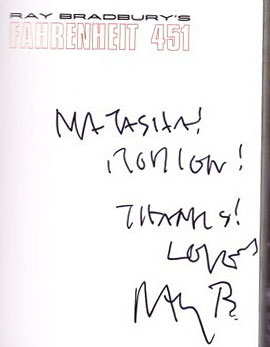 RAY BRADBURY'S
FAHRENHEIT 451
NATASHA!
THANKS!
LOVE
RAY B.